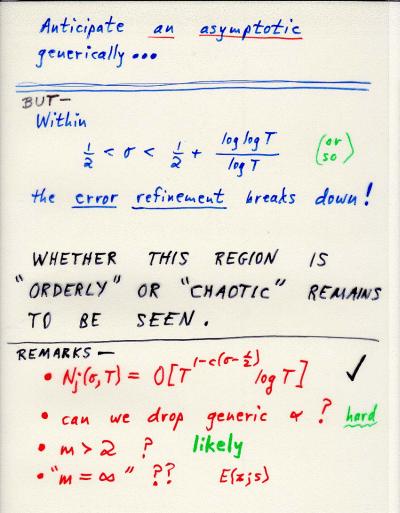 Anticipate an asymptotic
generically...
BUT—
Within
1/2 < σ < 1/2 + log log T / log T (or so)
the error refinement breaks down!
WHETHER THIS REGION IS
"ORDERLY" OR "CHAOTIC" REMAINS
TO BE SEEN.
REMARKS —
• Nj(σ,T) = O[T^{1-c(σ-1/2)} log T] ✓
• can we drop generic α ? hard
• m > 2 ? likely
• "m = ∞" ?? E(z;s)